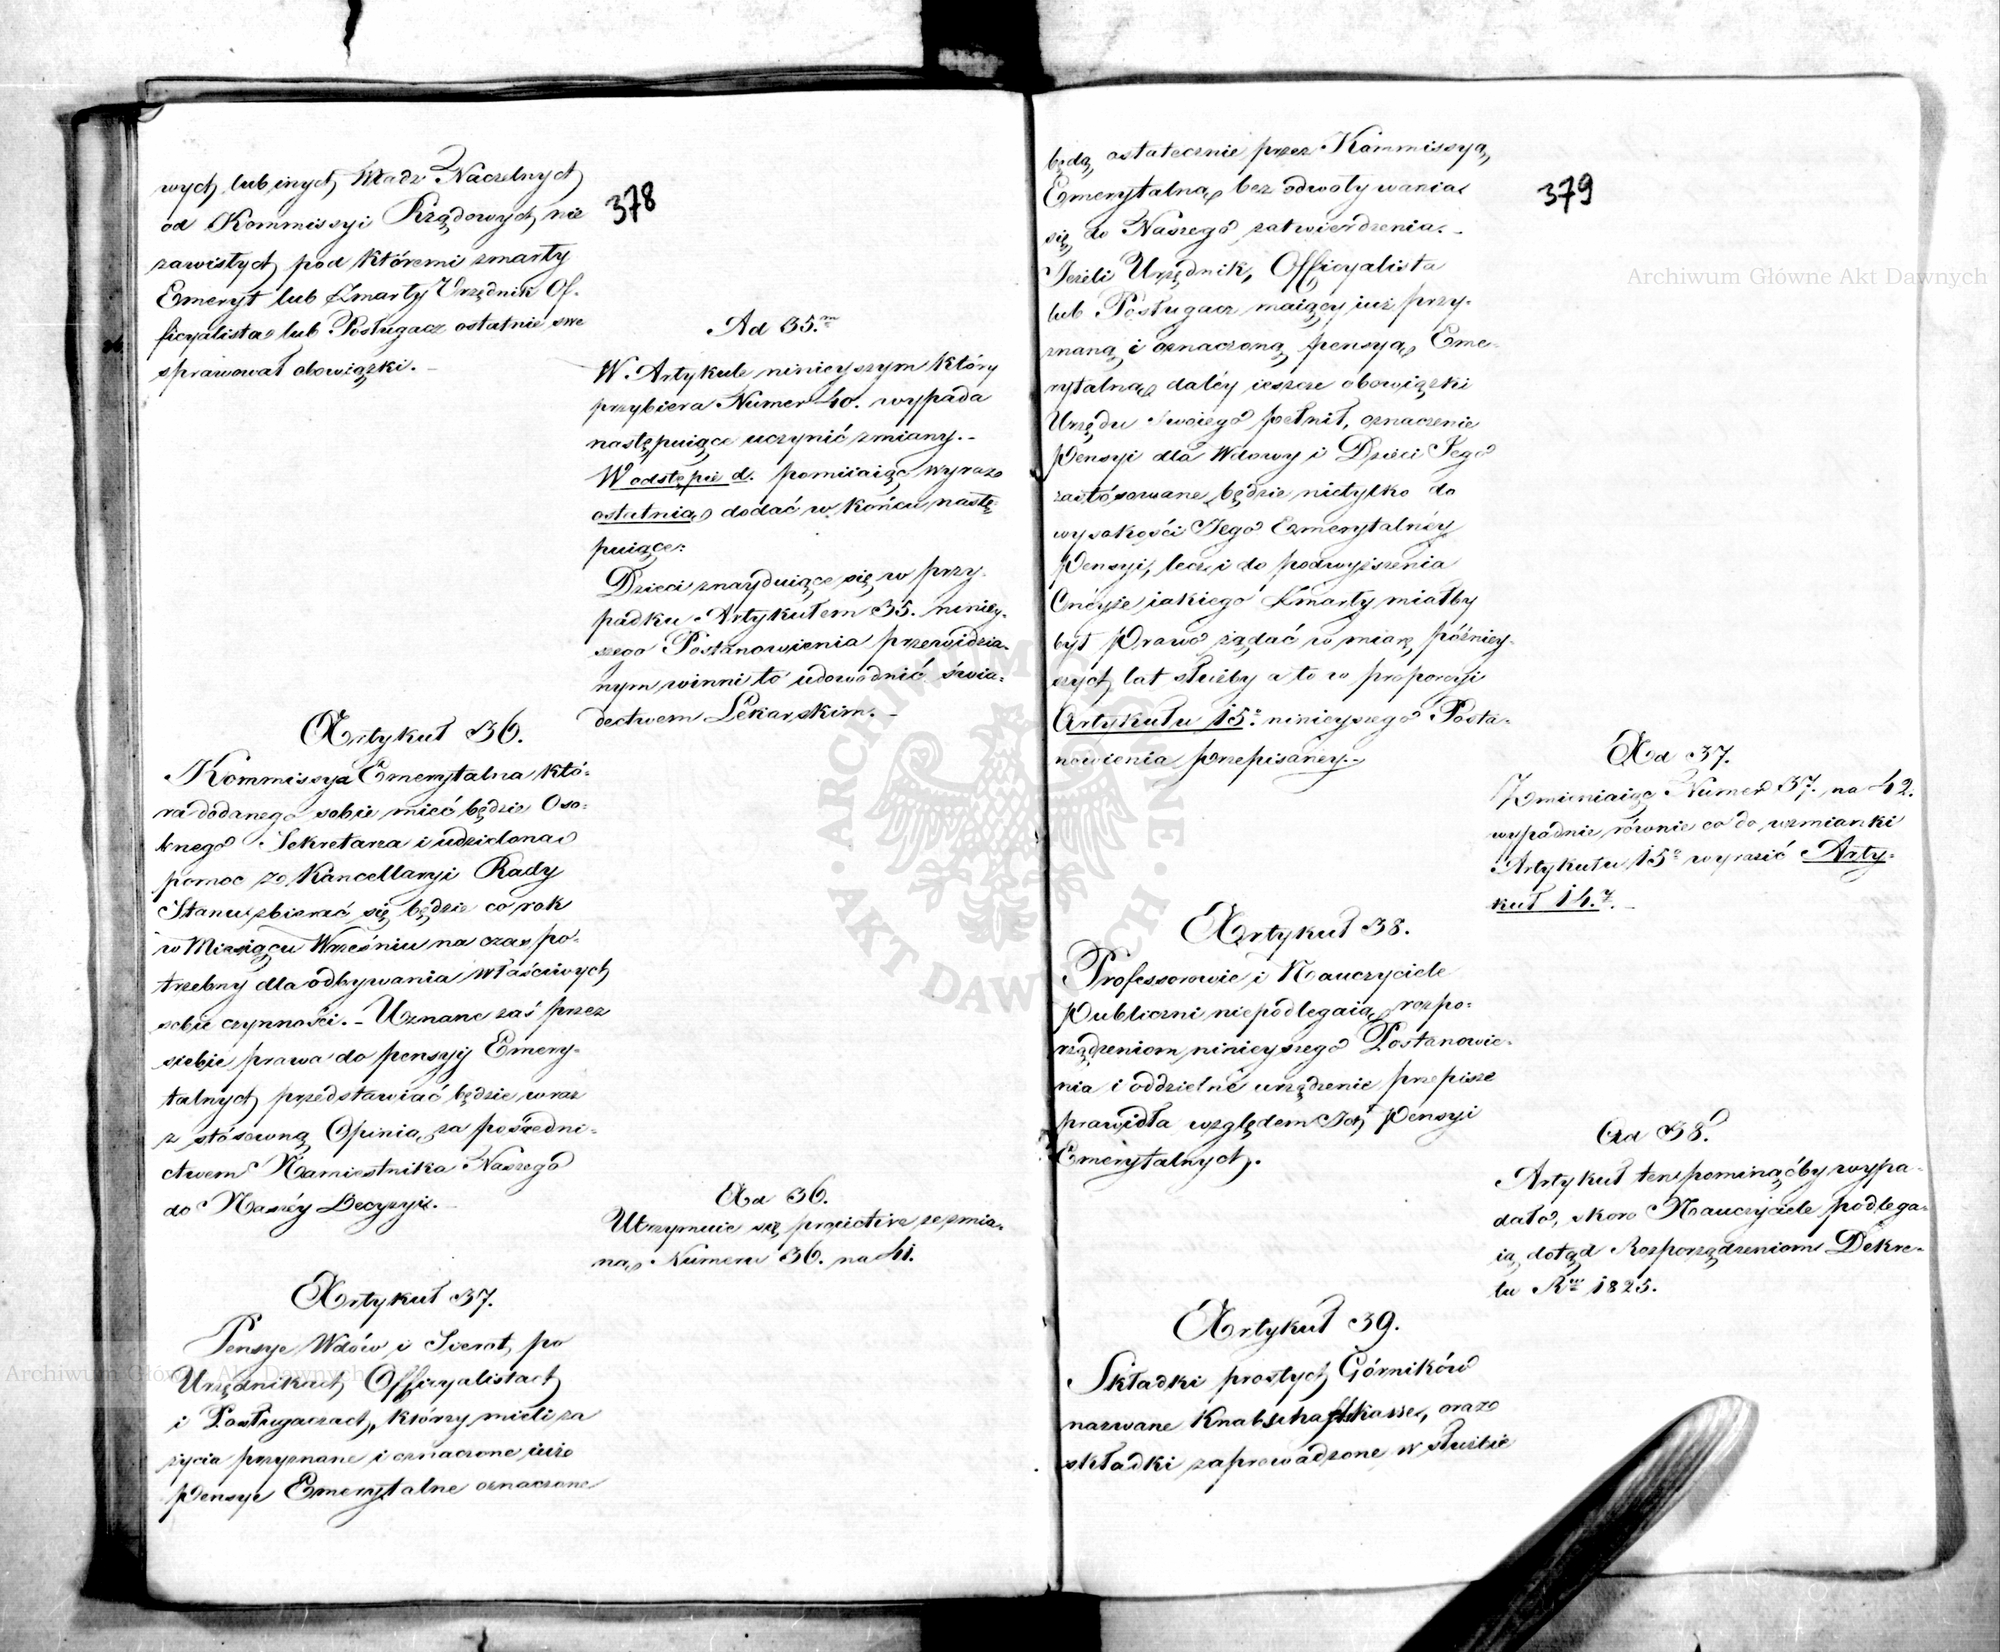 378
wych lub inych Władz Naczelnych
od Kommissyi Rządowych nie
zawisłych pod któremi zmarły
Emeryt lub Zmarły Urzędnik Of-
ficyalista lub Posługacz ostatnie swe
sprawował obowiązki. -
Ad 35.m
W Artykule ninieyszym który
przybiera Numer 40. wypada
następuiące uczynić zmiany. -
W odstępie d. pomiiaiąc wyraz
ostatnia, dodać w końcu nastę-
puiące:
Dzieci znayduiące się w przy-
padku Artykułem 35. niniey-
szego Postanowienia przewidzia-
nym winni to udowodnić świa-
dectwem Lekarskim. -
Artykuł 36.
Kommissya Emerytalna któ-
ra dodanego sobie mieć będzie Oso-
bnego Sekretarza i udzieloną
pomoc z Kancellaryi Rady
Stanu zbierać się będzie co rok
w Miesiącu Wrześniu na czas po-
trzebny dla odbywania właściwych
sobie czynności. - Uznane zaś przez
siebie prawa do pensyj Emery-
talnych przedstawiać będzie wraz
z stósowną Opinią za pośredni-
ctwem Namiestnika Naszego
do Naszéy Decyzyi. -
Ad 36.
Utrzymuie się proiect ze zmia-
ną Numeru 36. na 41.
Artykuł 37.
Pensye Wdów i Sierot po
Urzędnikach Officyalistach
i Posługaczach, którzy mieli za
życia przyznane i oznaczone iuż
Pensye Emerytalne oznaczone
379
będą ostatecznie przez Kommissyą
Emerytalną bez odwoływania
się do Naszego zatwierdzenia. -
Jeżeli Urzędnik, Officyalista
lub Posługacz maiący iuż przy-
znaną i oznaczoną pensyą Eme-
rytalną daléy ieszcze obowiązki
Urzędu swoiego pełnił, oznaczenie
Pensyi dla Wdowy i Dzieci Jego
zastósowane będzie nietylko do
wysokości Jego Emerytalnéy
Pensyi, lecz i do podwyższenia
Onéyże iakiego Zmarły miałby
był Prawo żądać w miarę późniey-
szych lat służby a to w proporcyi
Artykułu 15o ninieyszego Posta-
nowienia przepisanéy. -
Ad 37.
Zmieniaiąc Numer 37. na 42.
wypadnie równie co do wzmianki
Artykułu 15o wyrazić Arty-
kuł 14.
Artykuł 38.
Professorowie i Nauczyciele
Publiczni niepodlegaią rozpo-
rządzeniom ninieyszego Postanowie-
nia i oddzielne urządzenie przepisze
prawidła względem Ich Pensyi
Emerytalnych.
Ad 38.
Artykuł ten pominąćby wypa-
dało, skoro Nauczyciele podlega-
ią dotąd Rozporządzeniom Dekre-
tu Ru 1825.
Artykuł 39.
Składki prostych Górników
nazwane Knabschaftskasse, oraz
składki zaprowadzone w służbie
Archiwum Główne Akt Dawnych
Archiwum Główne Akt Dawnych
ARCHIWUM GŁÓWNE AKT DAWNYCH